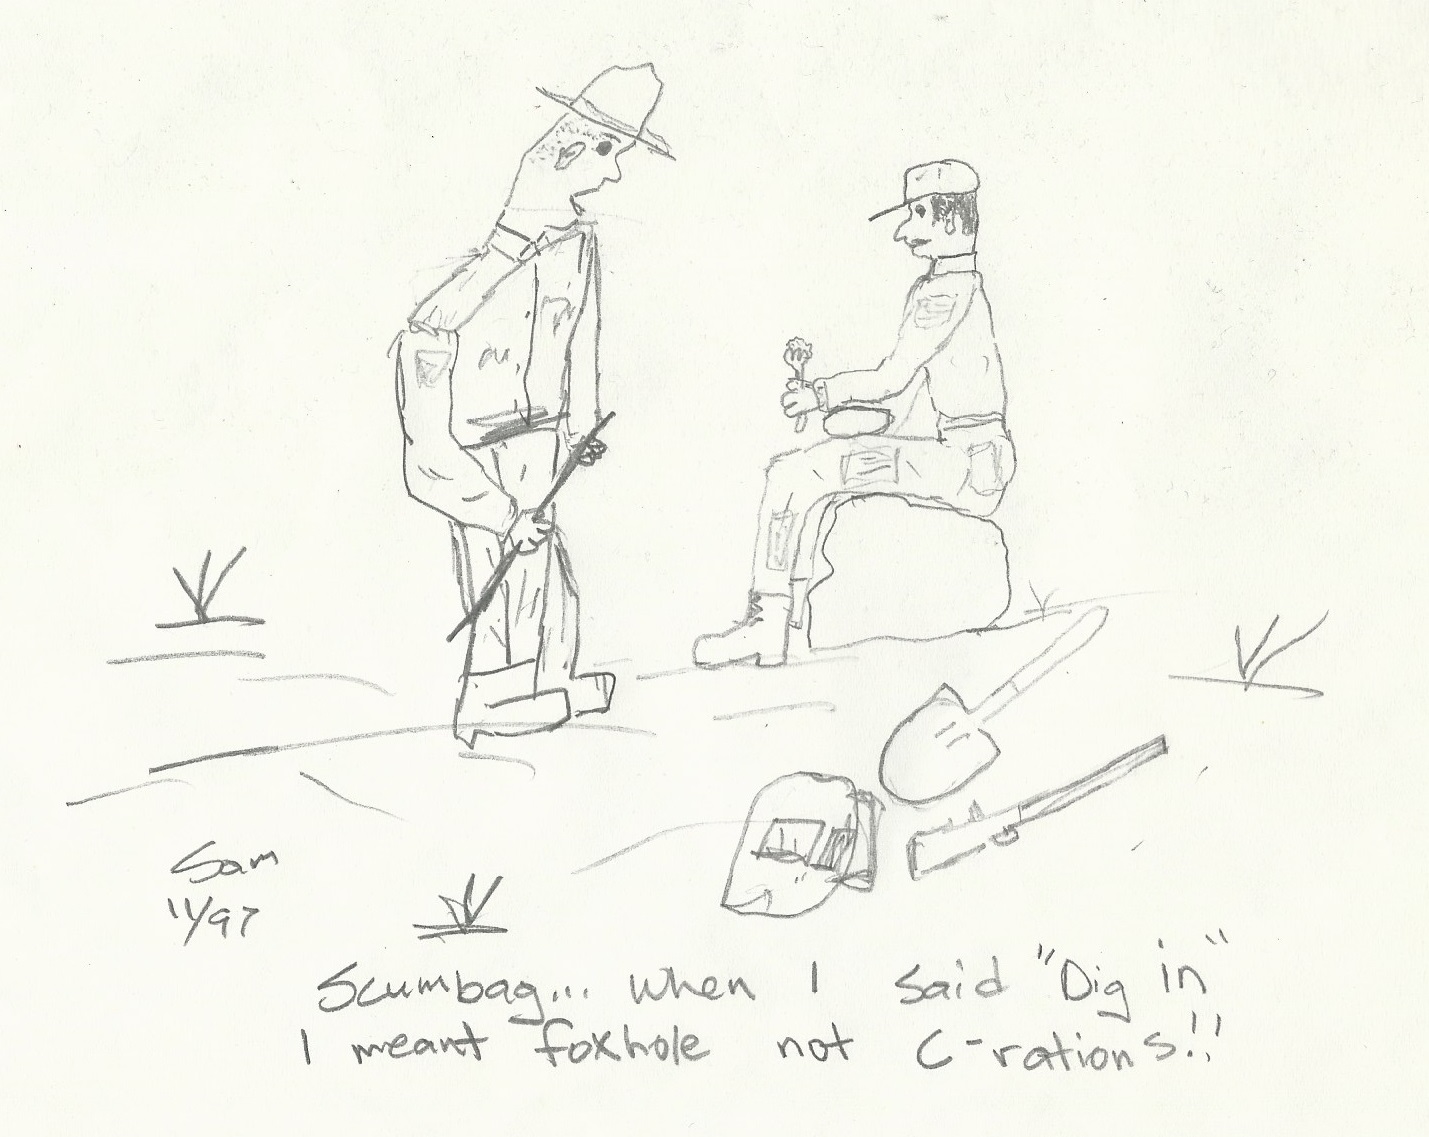 Sam
11/97
Scumbag... when I said "Dig in"
I meant foxhole not C-rations!!